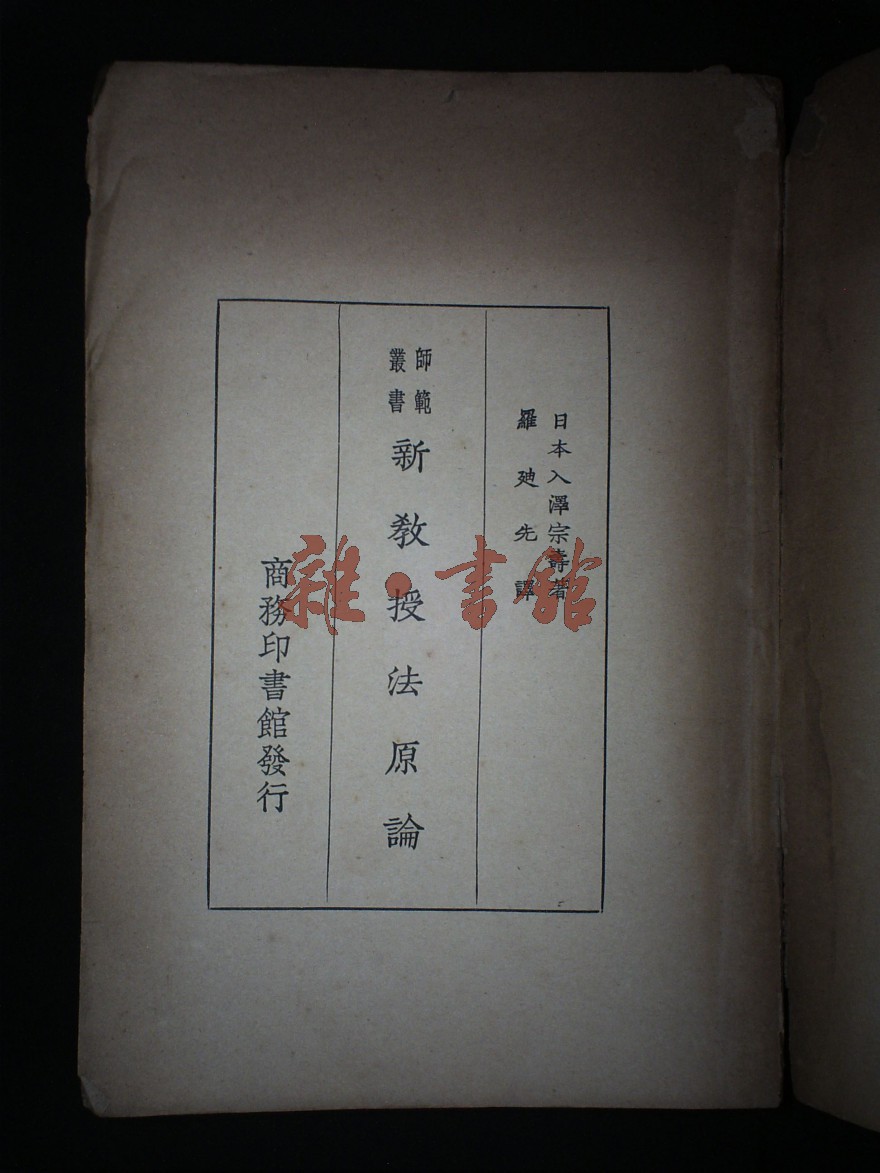 日本入澤宗壽著
羅廸先譯
師範
叢書
新教授法原論
商務印書館發行
雜·書館